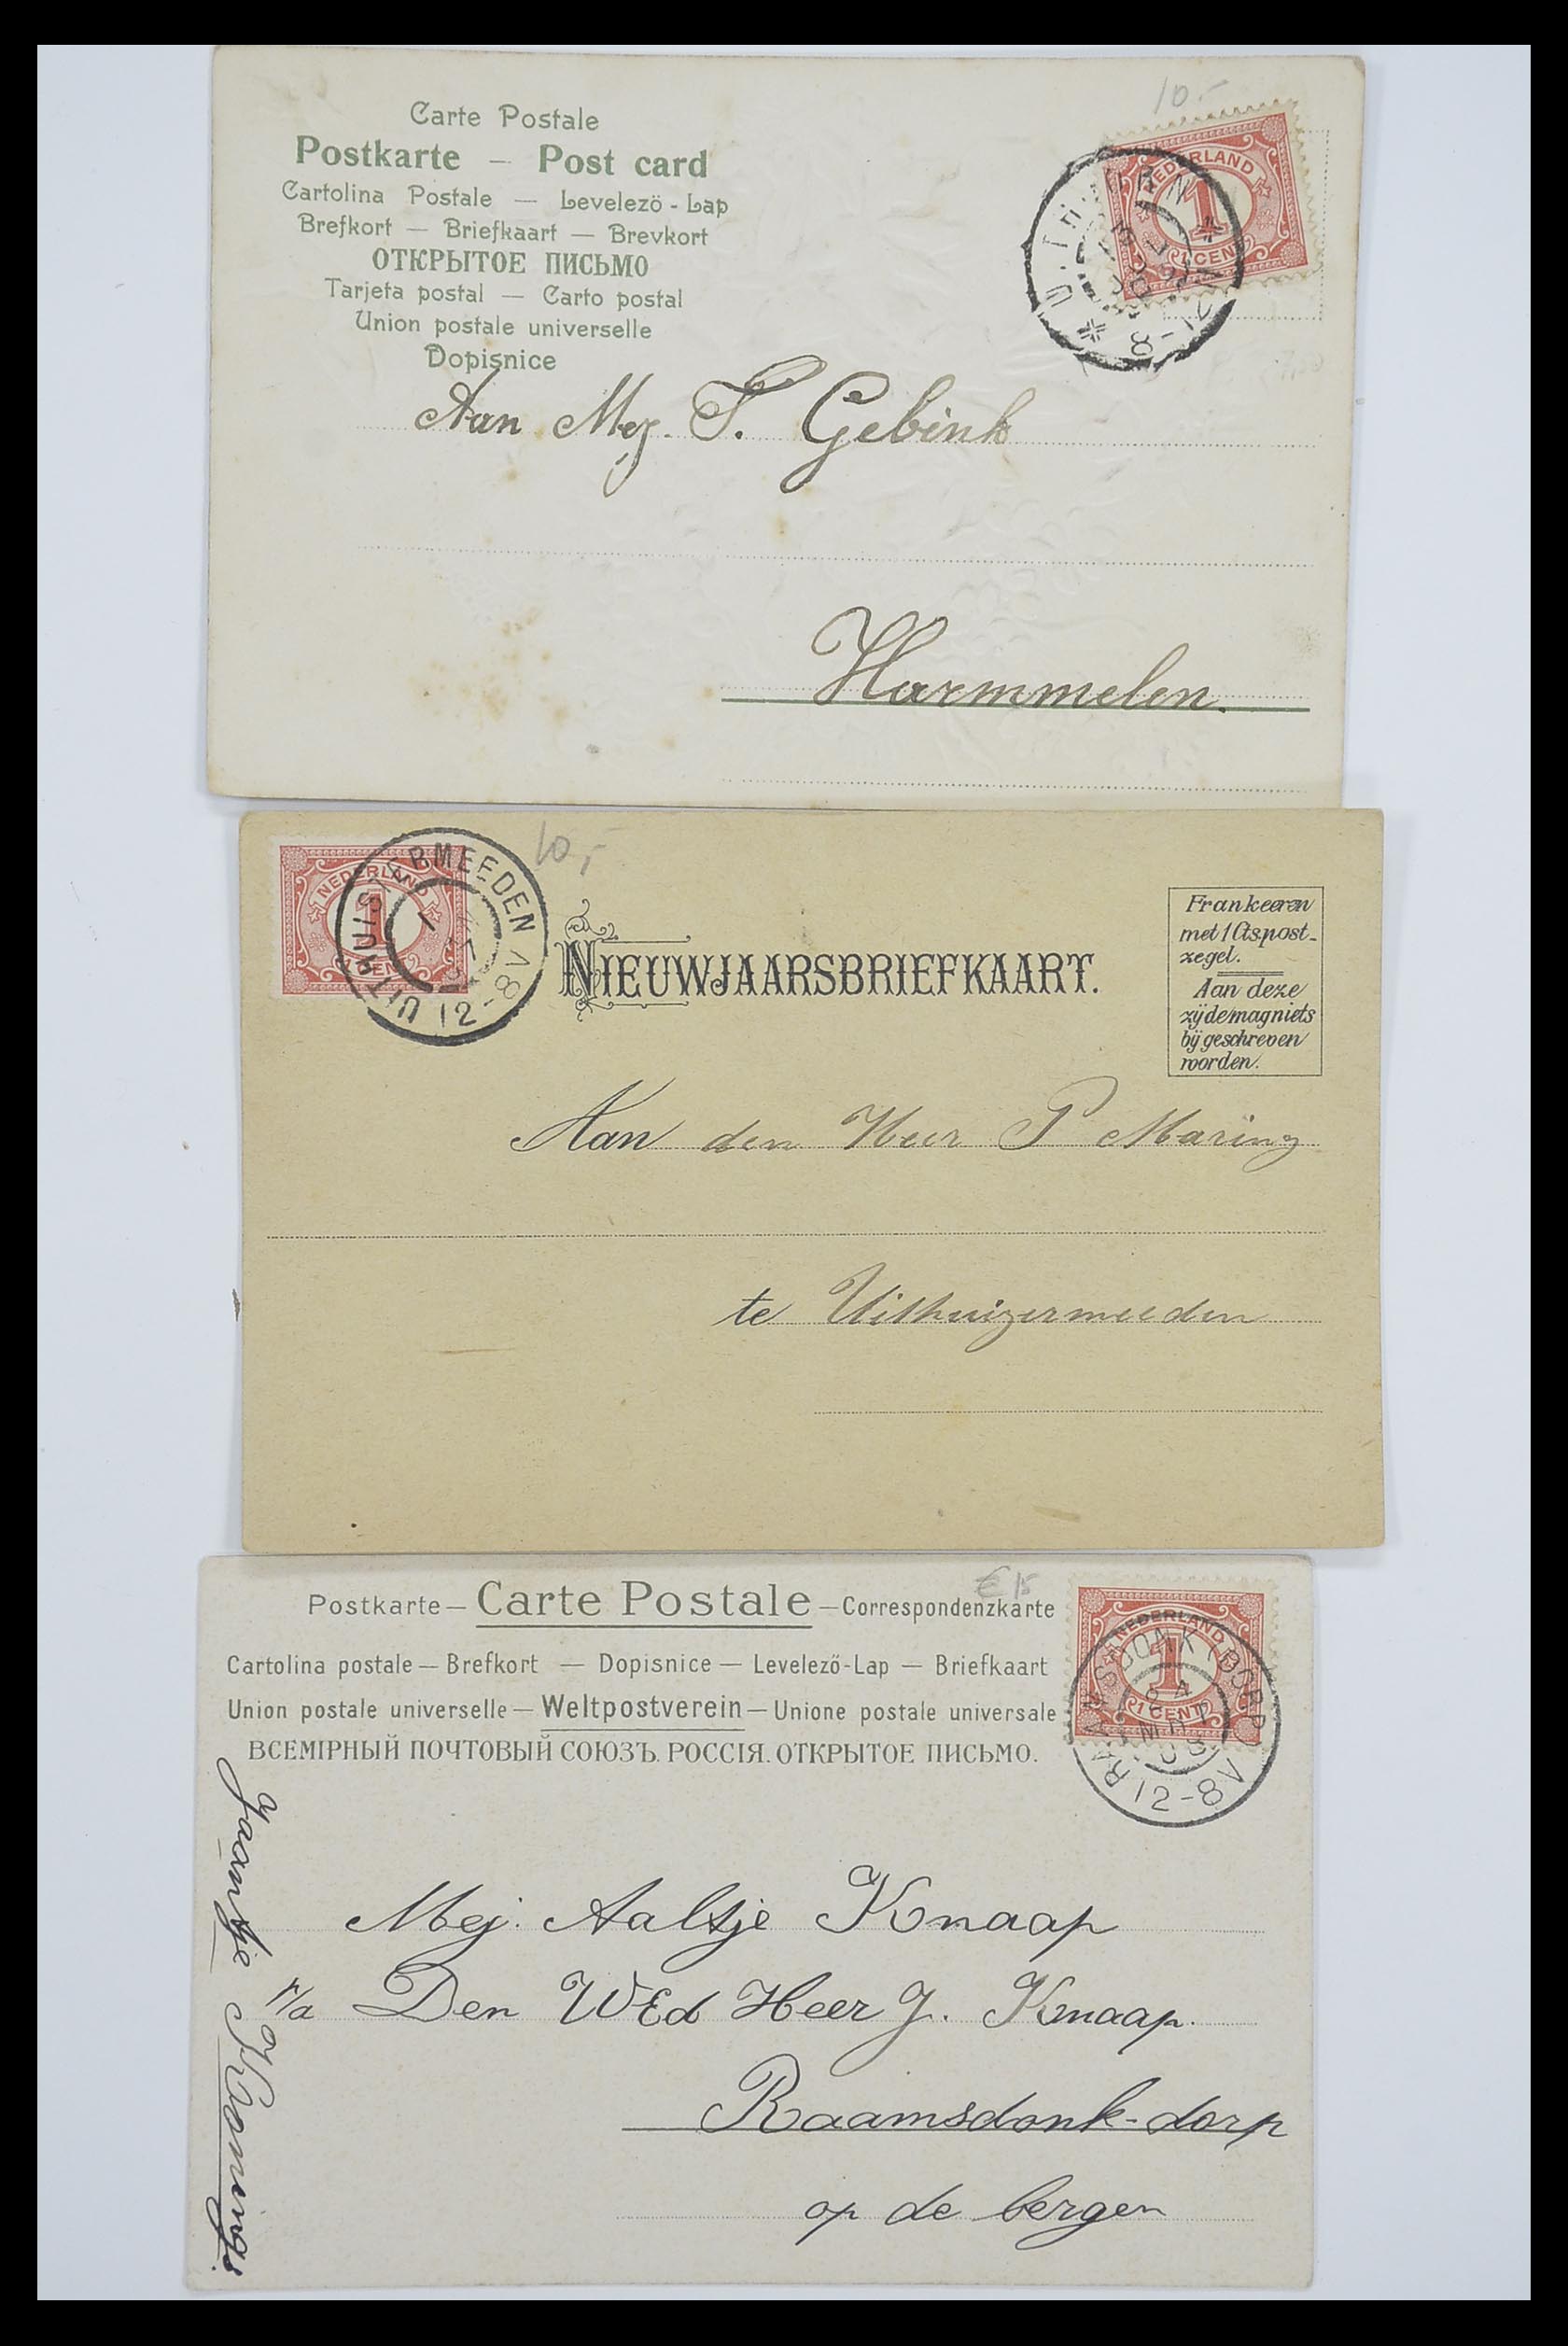 10.-
Carte Postale
Postkarte – Post card
Cartolina Postale — Levelezö - Lap
Brefkort — Briefkaart — Brevkort
ОТКРЫТОЕ ПИСЬМО
Tarjeta postal — Carto postal
Union postale universelle
Dopisnice
NEDERLAND
1
1 CENT
Aan Mej. S. Gebink
Harmmelen.
10,-
NEDERLAND
1
1 CENT
UITHUISTERMEEDEN
12-8V
NIEUWJAARSBRIEFKAART.
Frankeeren
met 1 Cts post-
zegel.
Aan deze
zijde mag niets
bij geschreven
worden.
Aan den Heer P Maring
te Uithuizermeeden
€ 15
Postkarte – Carte Postale – Correspondenzkarte
Cartolina postale — Brefkort — Dopisnice — Levelező-Lap — Briefkaart
Union postale universelle — Weltpostverein — Unione postale universale
ВСЕМІРНЫЙ ПОЧТОВЫЙ СОЮЗЪ. РОССІЯ. ОТКРЫТОЕ ПИСЬМО.
NEDERLAND
1
1 CENT
RAAMSDONK (DORP)
24
MRT
08
12-8V
Mej. Aaltje Knaap
p/a Den WEd Heer J. Knaap.
Raamsdonk-dorp
op de bergen
Jaantje Konings.